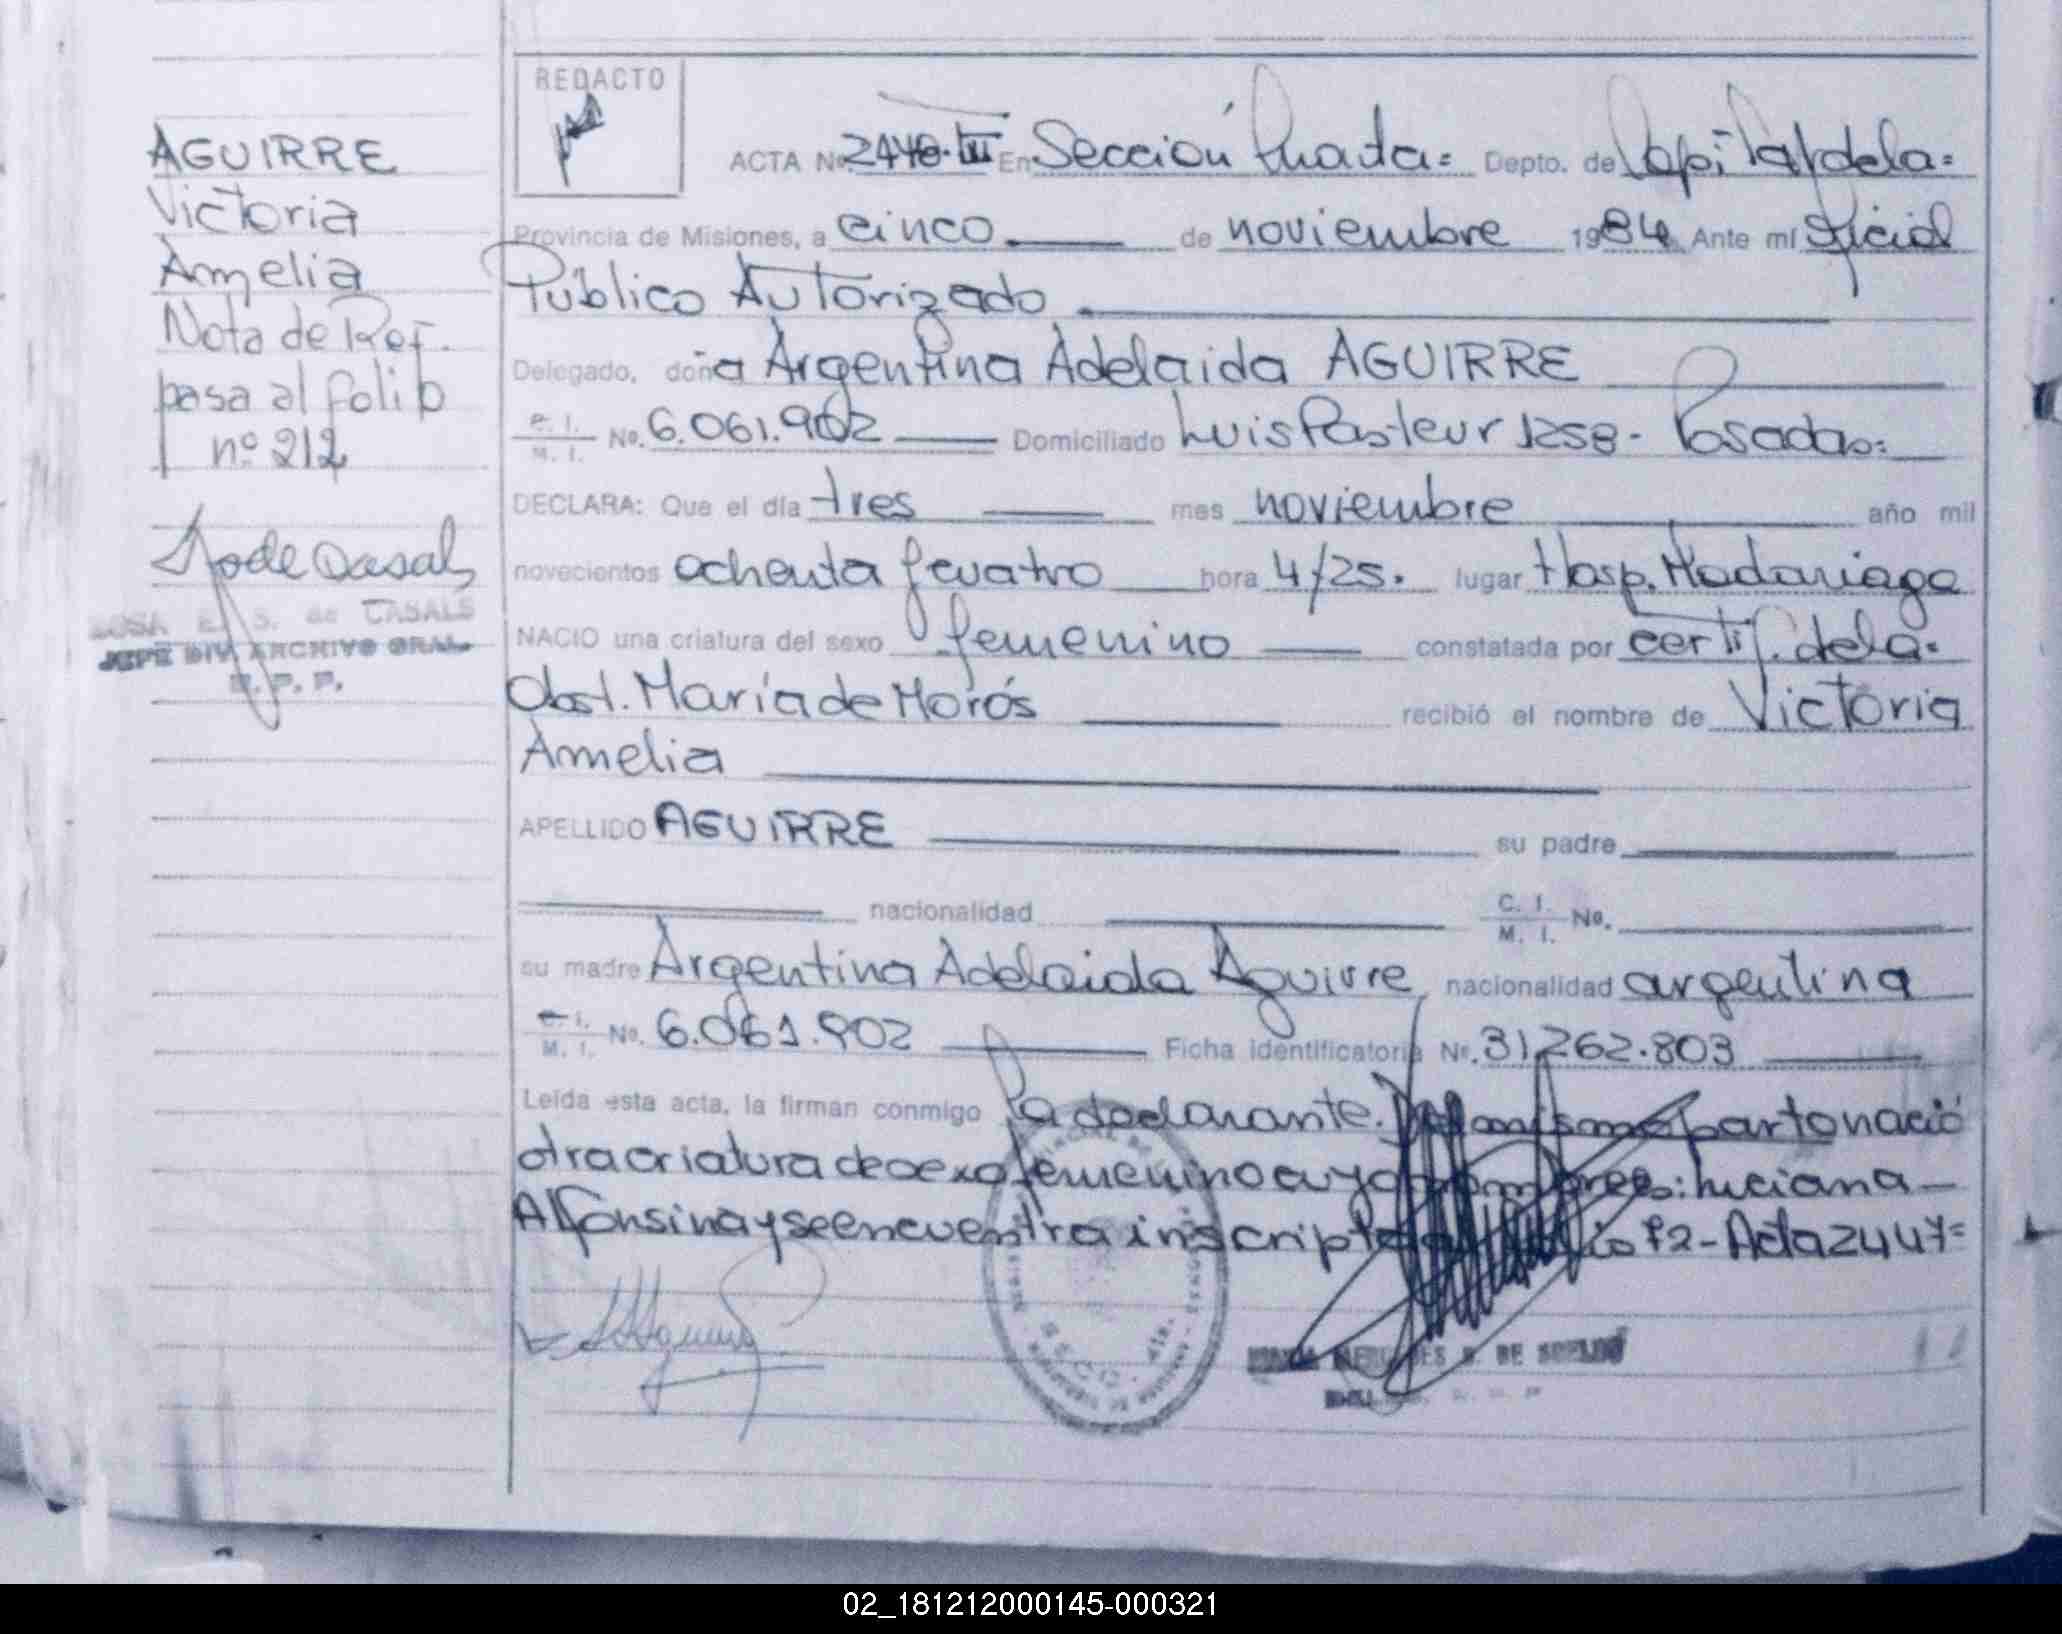 REDACTO
AGUIRRE
Victoria
Amelia
Nota de Ref.
pasa al folio
nº 212
S. de CASALS
JEFE DIV. ARCHIVO GRAL.
R. P. P.
ACTA Nº 2448-III En Sección Cuarta= Depto. de Capital de la=
Provincia de Misiones, a cinco de noviembre 1984 Ante mí Oficial
Público Autorizado
Delegado, doña Argentina Adelaida AGUIRRE
C. I. M. I. No. 6.061.902 Domiciliado Luis Pasteur 1258- Posadas=
DECLARA: Que el día tres mes noviembre año mil
novecientos ochenta y cuatro hora 4/25. lugar Hosp. Madariaga
NACIO una criatura del sexo femenino constatada por certif. de la=
Obst. María de Morós recibió el nombre de Victoria
Amelia
APELLIDO AGUIRRE su padre
nacionalidad C. I. M. I. No.
su madre Argentina Adelaida Aguirre nacionalidad argentina
C. I. M. I. No. 6.061.902 Ficha identificatoria Nº. 31262.803
Leída esta acta, la firman conmigo la declarante. Del mismo parto nació
otra criatura de sexo femenino cuyo nombre es: Luciana-
Alfonsina y se encuentra inscripta 72-Acta 2447=
MERCEDES DE
02_181212000145-000321